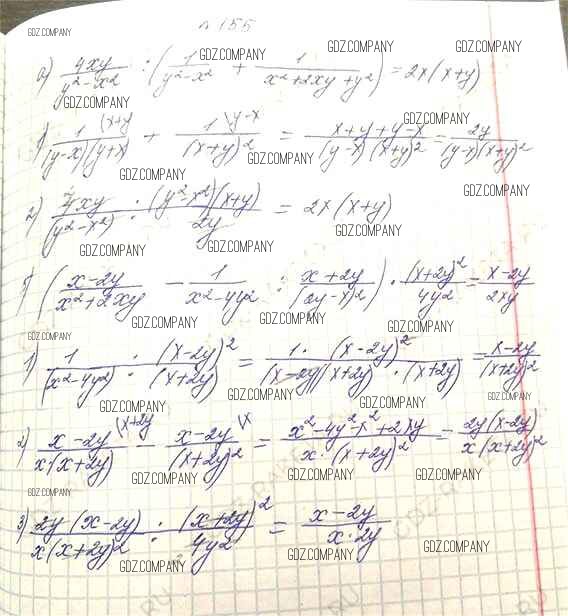 GDZ.COMPANY
№ 155
GDZ.COMPANY GDZ.COMPANY GDZ.COMPANY
а) 4xy/(y²-x²) : (1/(y²-x²) + 1/(x²+2xy+y²)) = 2x(x+y)
GDZ.COMPANY GDZ.COMPANY GDZ.COMPANY
1) 1/((y-x)(y+x)) \(x+y + 1/(x+y)² \y-x = (x+y+y-x)/((y-x)(x+y)²) = 2y/((y-x)(x+y)²)
GDZ.COMPANY GDZ.COMPANY GDZ.COMPANY
2) 4xy/(y²-x²) · (y²-x²)(x+y)/2y = 2x(x+y)
GDZ.COMPANY GDZ.COMPANY GDZ.COMPANY
((x-2y)/(x²+2xy) - 1/(x²-4y²) : (x+2y)/(2y-x)²) · (x+2y)²/4y² = (x-2y)/2xy
GDZ.COMPANY GDZ.COMPANY
GDZ.COMPANY
1) 1/(x²-4y²) · (x-2y)²/(x+2y) = 1·(x-2y)²/((x-2y)(x+2y)·(x+2y)) = (x-2y)/(x+2y)²
GDZ.COMPANY GDZ.COMPANY GDZ.COMPANY
2) (x-2y)/(x(x+2y)) \(x+2y - (x-2y)/(x+2y)² \x = (x²-4y²-x²+2xy)/(x·(x+2y)²) = 2y(x-2y)/(x(x+2y)²)
GDZ.COMPANY GDZ.COMPANY GDZ.COMPANY
GDZ.COMPANY
3) 2y(x-2y)/(x(x+2y)²) : (x+2y)²/4y² = (x-2y)/(x·2y)
GDZ.COMPANY GDZ.COMPANY GDZ.COMPANY